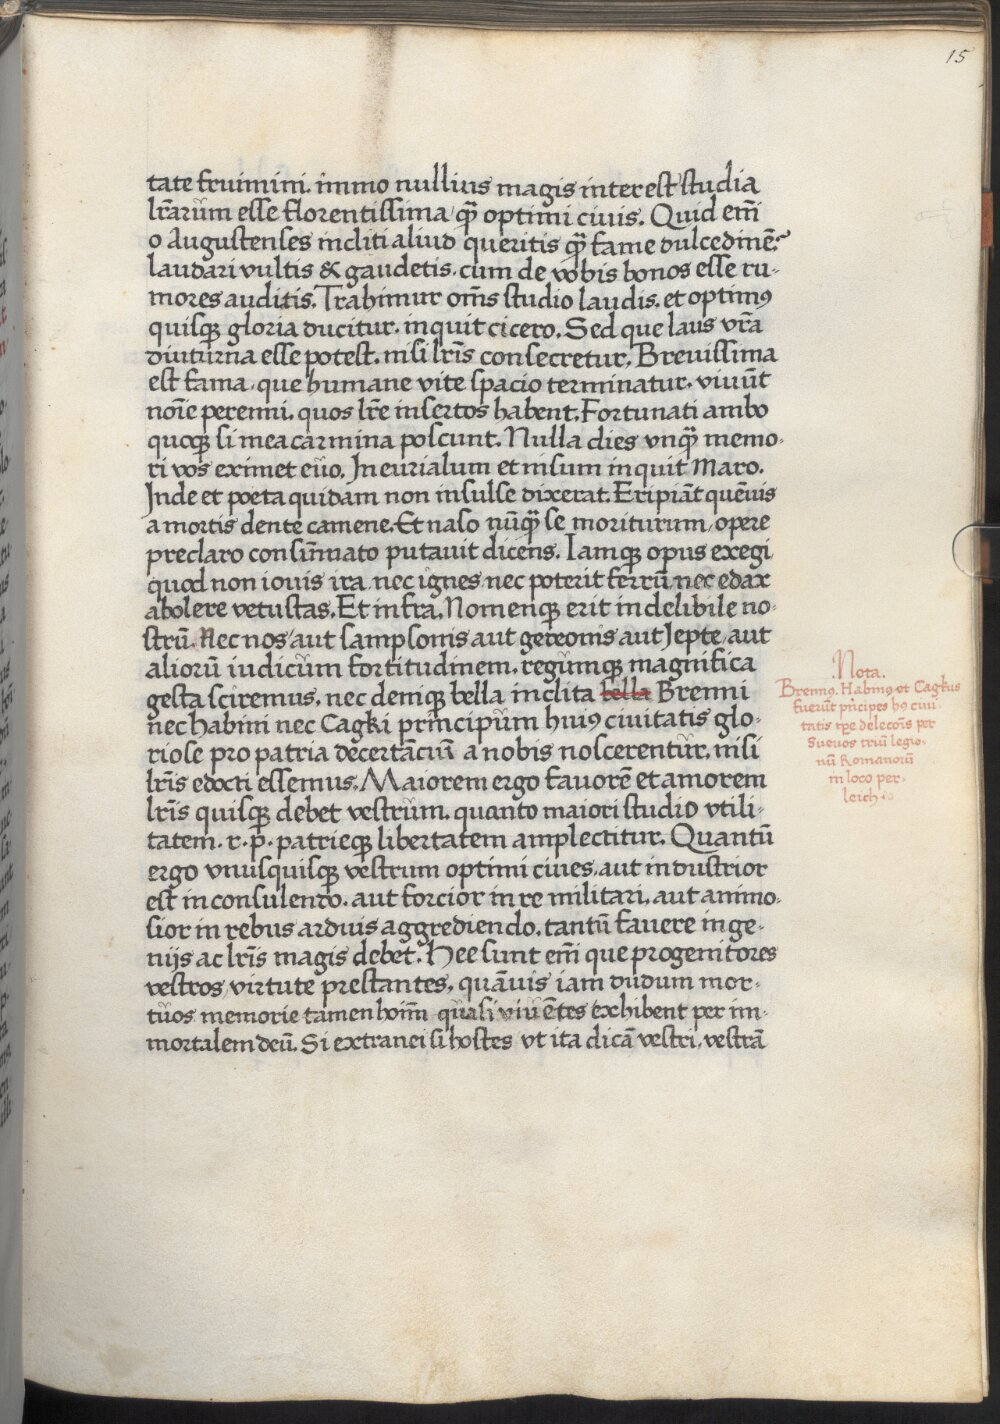 15
tate fruimini. immo nullius magis interest studia
lr̄arum esse florentissima qȝ̄ optimi ciuis. Quid em̄
o Augustenses incliti aliud queritis qȝ̄ fame dulcedinē?
laudari vultis & gaudetis. cum de vobis bonos esse ru-
mores auditis. Trahimur om̄s studio laudis. et optimꝯ
quisqȝ gloria ducitur. inquit cicero. Sed que laus vr̄a
diuturna esse potest. nisi lr̄is consecretur. Breuissima
est fama. que humane vite spacio terminatur. viuūt
noīe perenni. quos lr̄e insertos habent. Fortunati ambo
quoqȝ si mea carmina poscunt. Nulla dies vnqȝ̄ memo-
ri vos eximet euo. In eurialum et nisum inquit Maro.
Inde et poeta quidam non insulse dixerat. Eripiāt quēuis
a mortis dente camene. Et naso nūqȝ̄ se moriturum, opere
preclaro consūmato putauit dicens. Iamqȝ opus exegi
quod non iouis ira nec ignes nec poterit ferrū nec edax
abolere vetustas. Et infra. Nomenqȝ erit indelibile no-
strū. Nec nos aut sampsonis aut gedeonis aut Jepte, aut
aliorū iudicum fortitudinem. regumqȝ magnifica
gesta sciremus, nec deniqȝ bella inclita bella Brenni
nec habini nec Cagki principum huiꝯ ciuitatis glo-
riose pro patria decertāciū a nobis noscerentur. nisi
lr̄is edocti essemus. Maiorem ergo fauorē et amorem
lr̄is quisqȝ debet vestrum. quanto maiori studio vtili-
tatem. r. p. patrieqȝ libertatem amplectitur. Quantū
ergo vnusquisqȝ vestrum optimi ciues. aut industrior
est in consulendo. aut forcior in re militari. aut animo-
sior in rebus arduis aggrediendo. tantū fauere inge-
nijs ac lr̄is magis debet. Hee sunt em̄ que progenitores
vestros, virtute prestantes, quāuis iam dudum mor-
tuos memorie tamen hoīm quasi viuētes exhibent per im-
mortalem deū. Si extranei si hostes vt ita dicā vestri, vestrā
Nota.
Brennꝯ. Habinꝯ et Cagkus
fuerūt prīcipes hꝯ ciui-
tatis tp̄e delecōis per
Sueuos triū legio-
nū Romanorū
in loco per-
leich